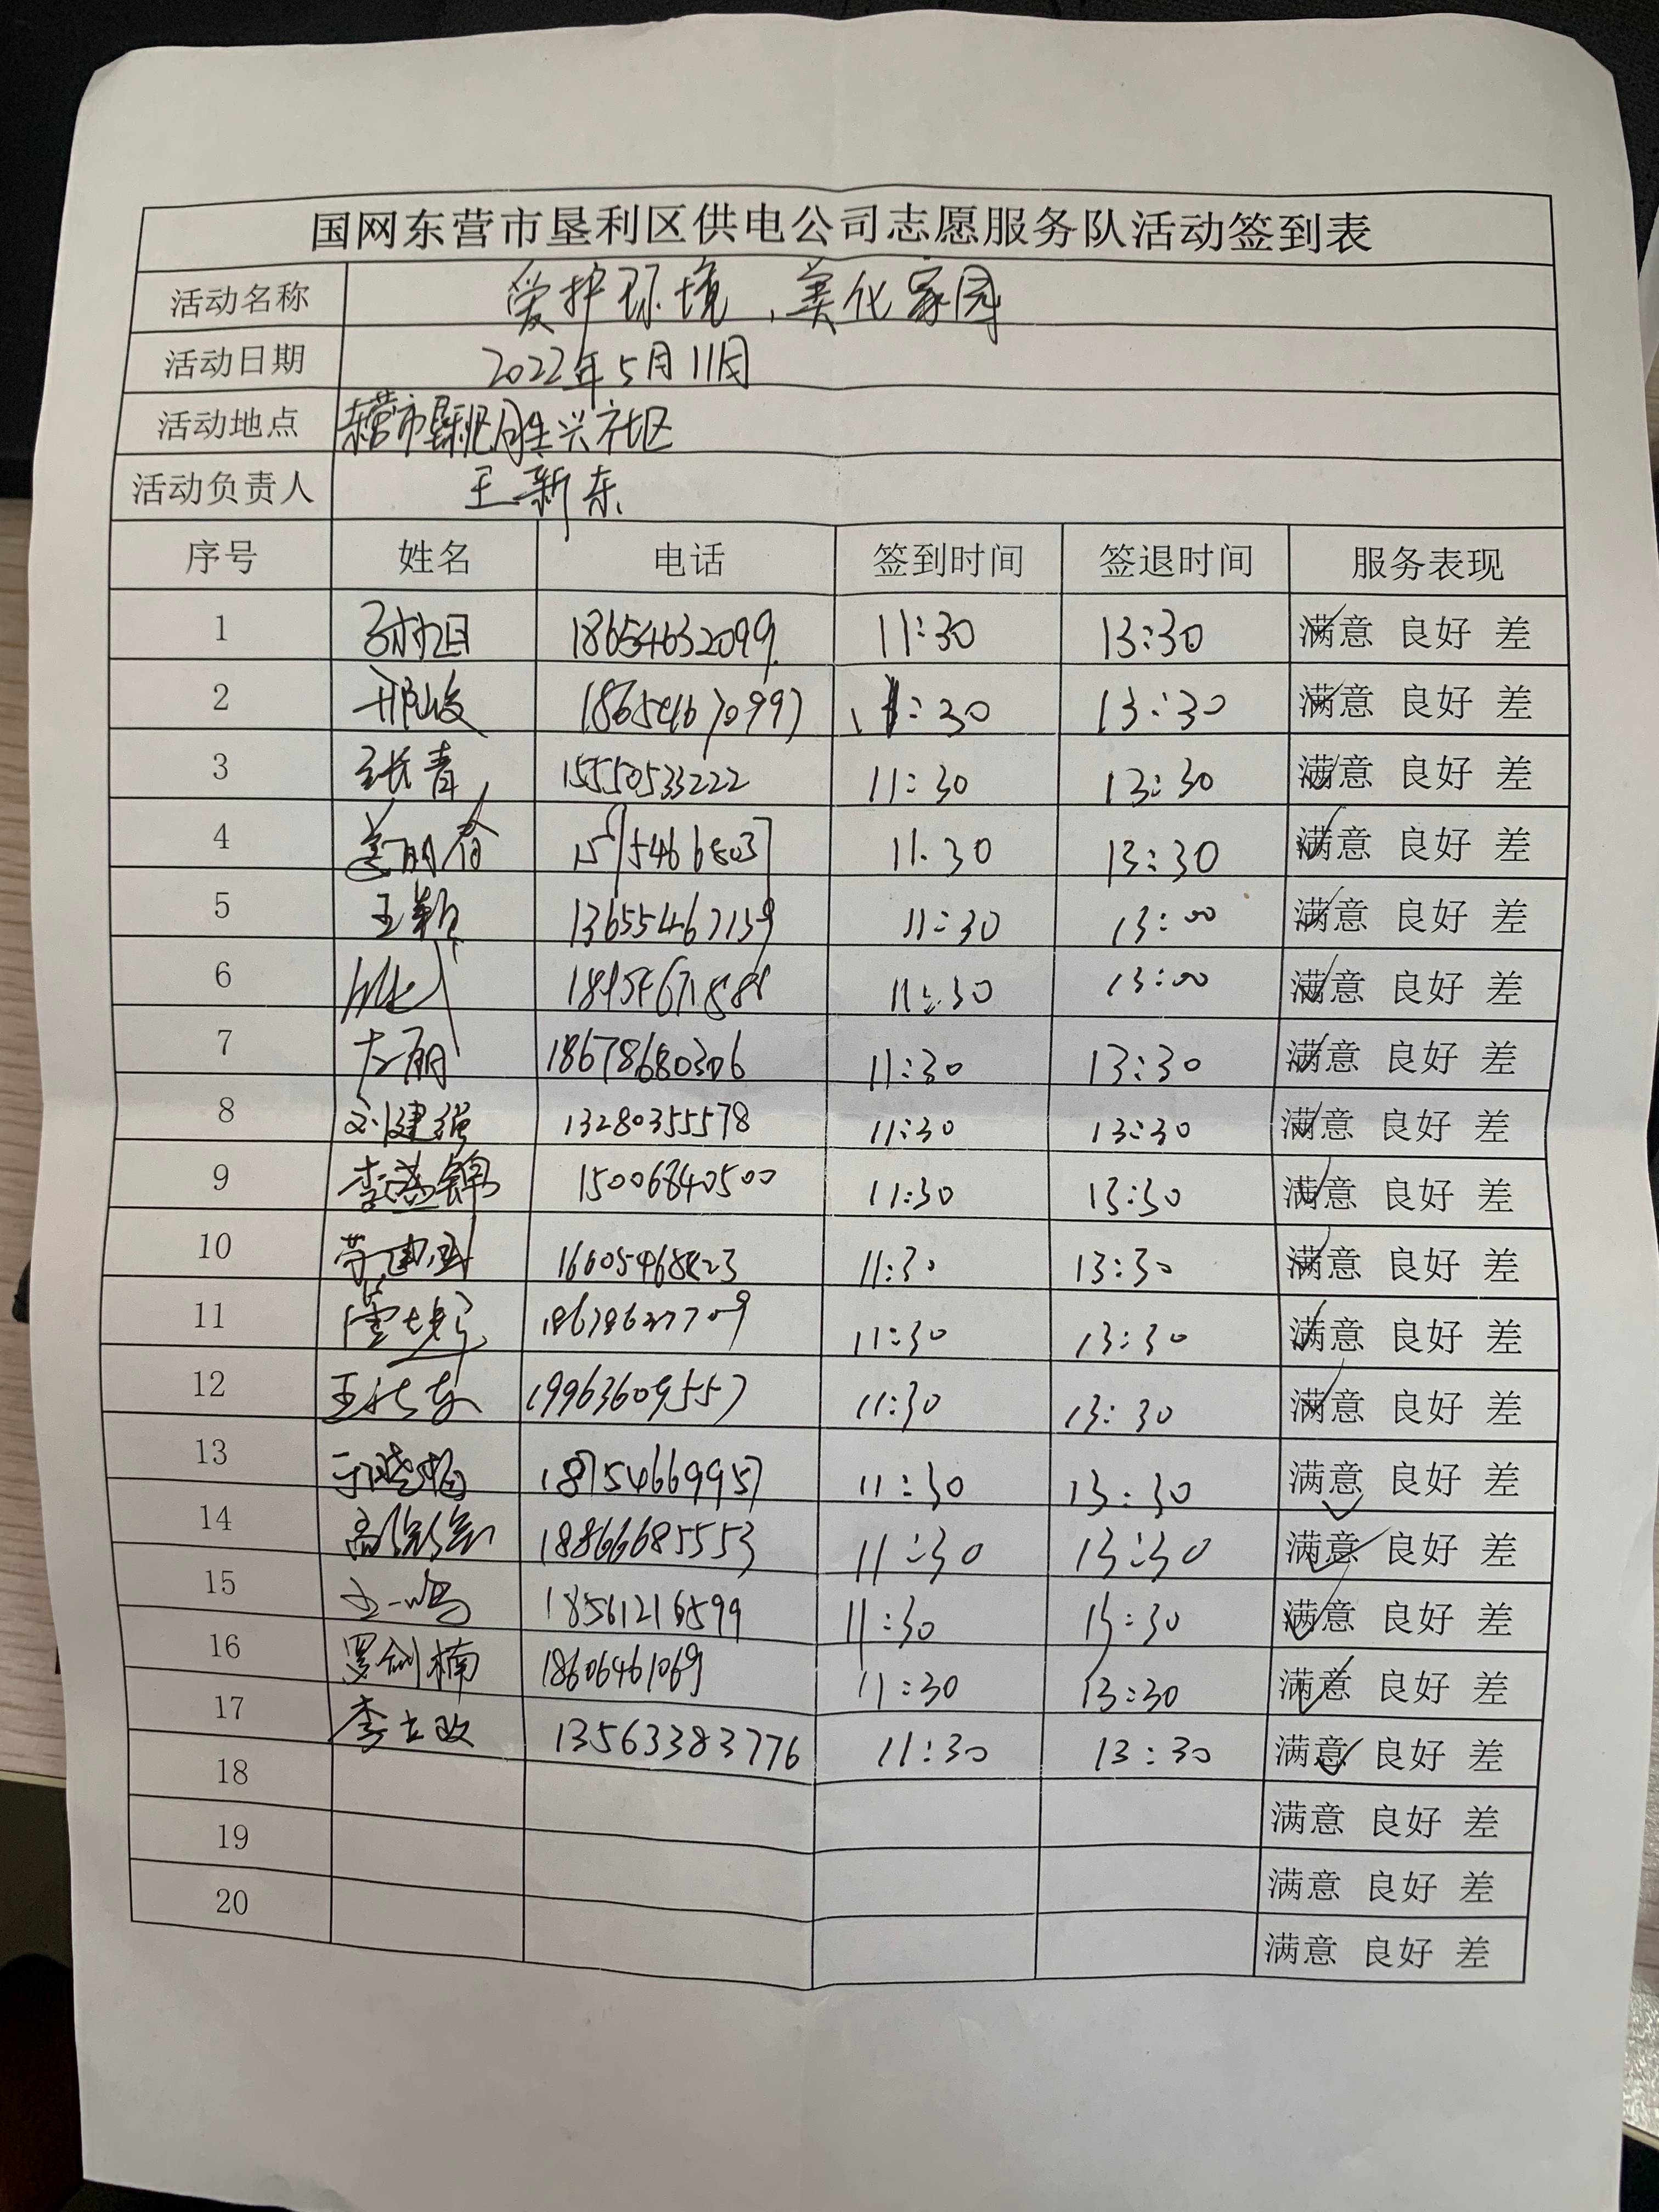 国网东营市垦利区供电公司志愿服务队活动签到表
活动名称 爱护环境、美化家园
活动日期 2022年5月11日
活动地点 东营市垦利区同兴社区
活动负责人 王新东
序号 姓名 电话 签到时间 签退时间 服务表现
1 孙旭 18654632099 11:30 13:30 满意 良好 差
2 邢峻 11:30 13:30 满意 良好 差
3 张青 15550533222 11:30 13:30 满意 良好 差
4 11:30 13:30 满意 良好 差
5 王 13655467159 11:30 13:00 满意 良好 差
6 11:30 13:00 满意 良好 差
7 左丽 18678680306 11:30 13:30 满意 良好 差
8 刘健强 13280355578 11:30 13:30 满意 良好 差
9 李 锦 15006840500 11:30 13:30 满意 良好 差
10 11:30 13:30 满意 良好 差
11 11:30 13:30 满意 良好 差
12 王 19963609557 11:30 13:30 满意 良好 差
13 于晓梅 18754669957 11:30 13:30 满意 良好 差
14 高 18866685553 11:30 13:30 满意 良好 差
15 王一鸣 18561216599 11:30 13:30 满意 良好 差
16 罗剑楠 18606461069 11:30 13:30 满意 良好 差
17 李立政 13563383776 11:30 13:30 满意 良好 差
18 满意 良好 差
19 满意 良好 差
20 满意 良好 差